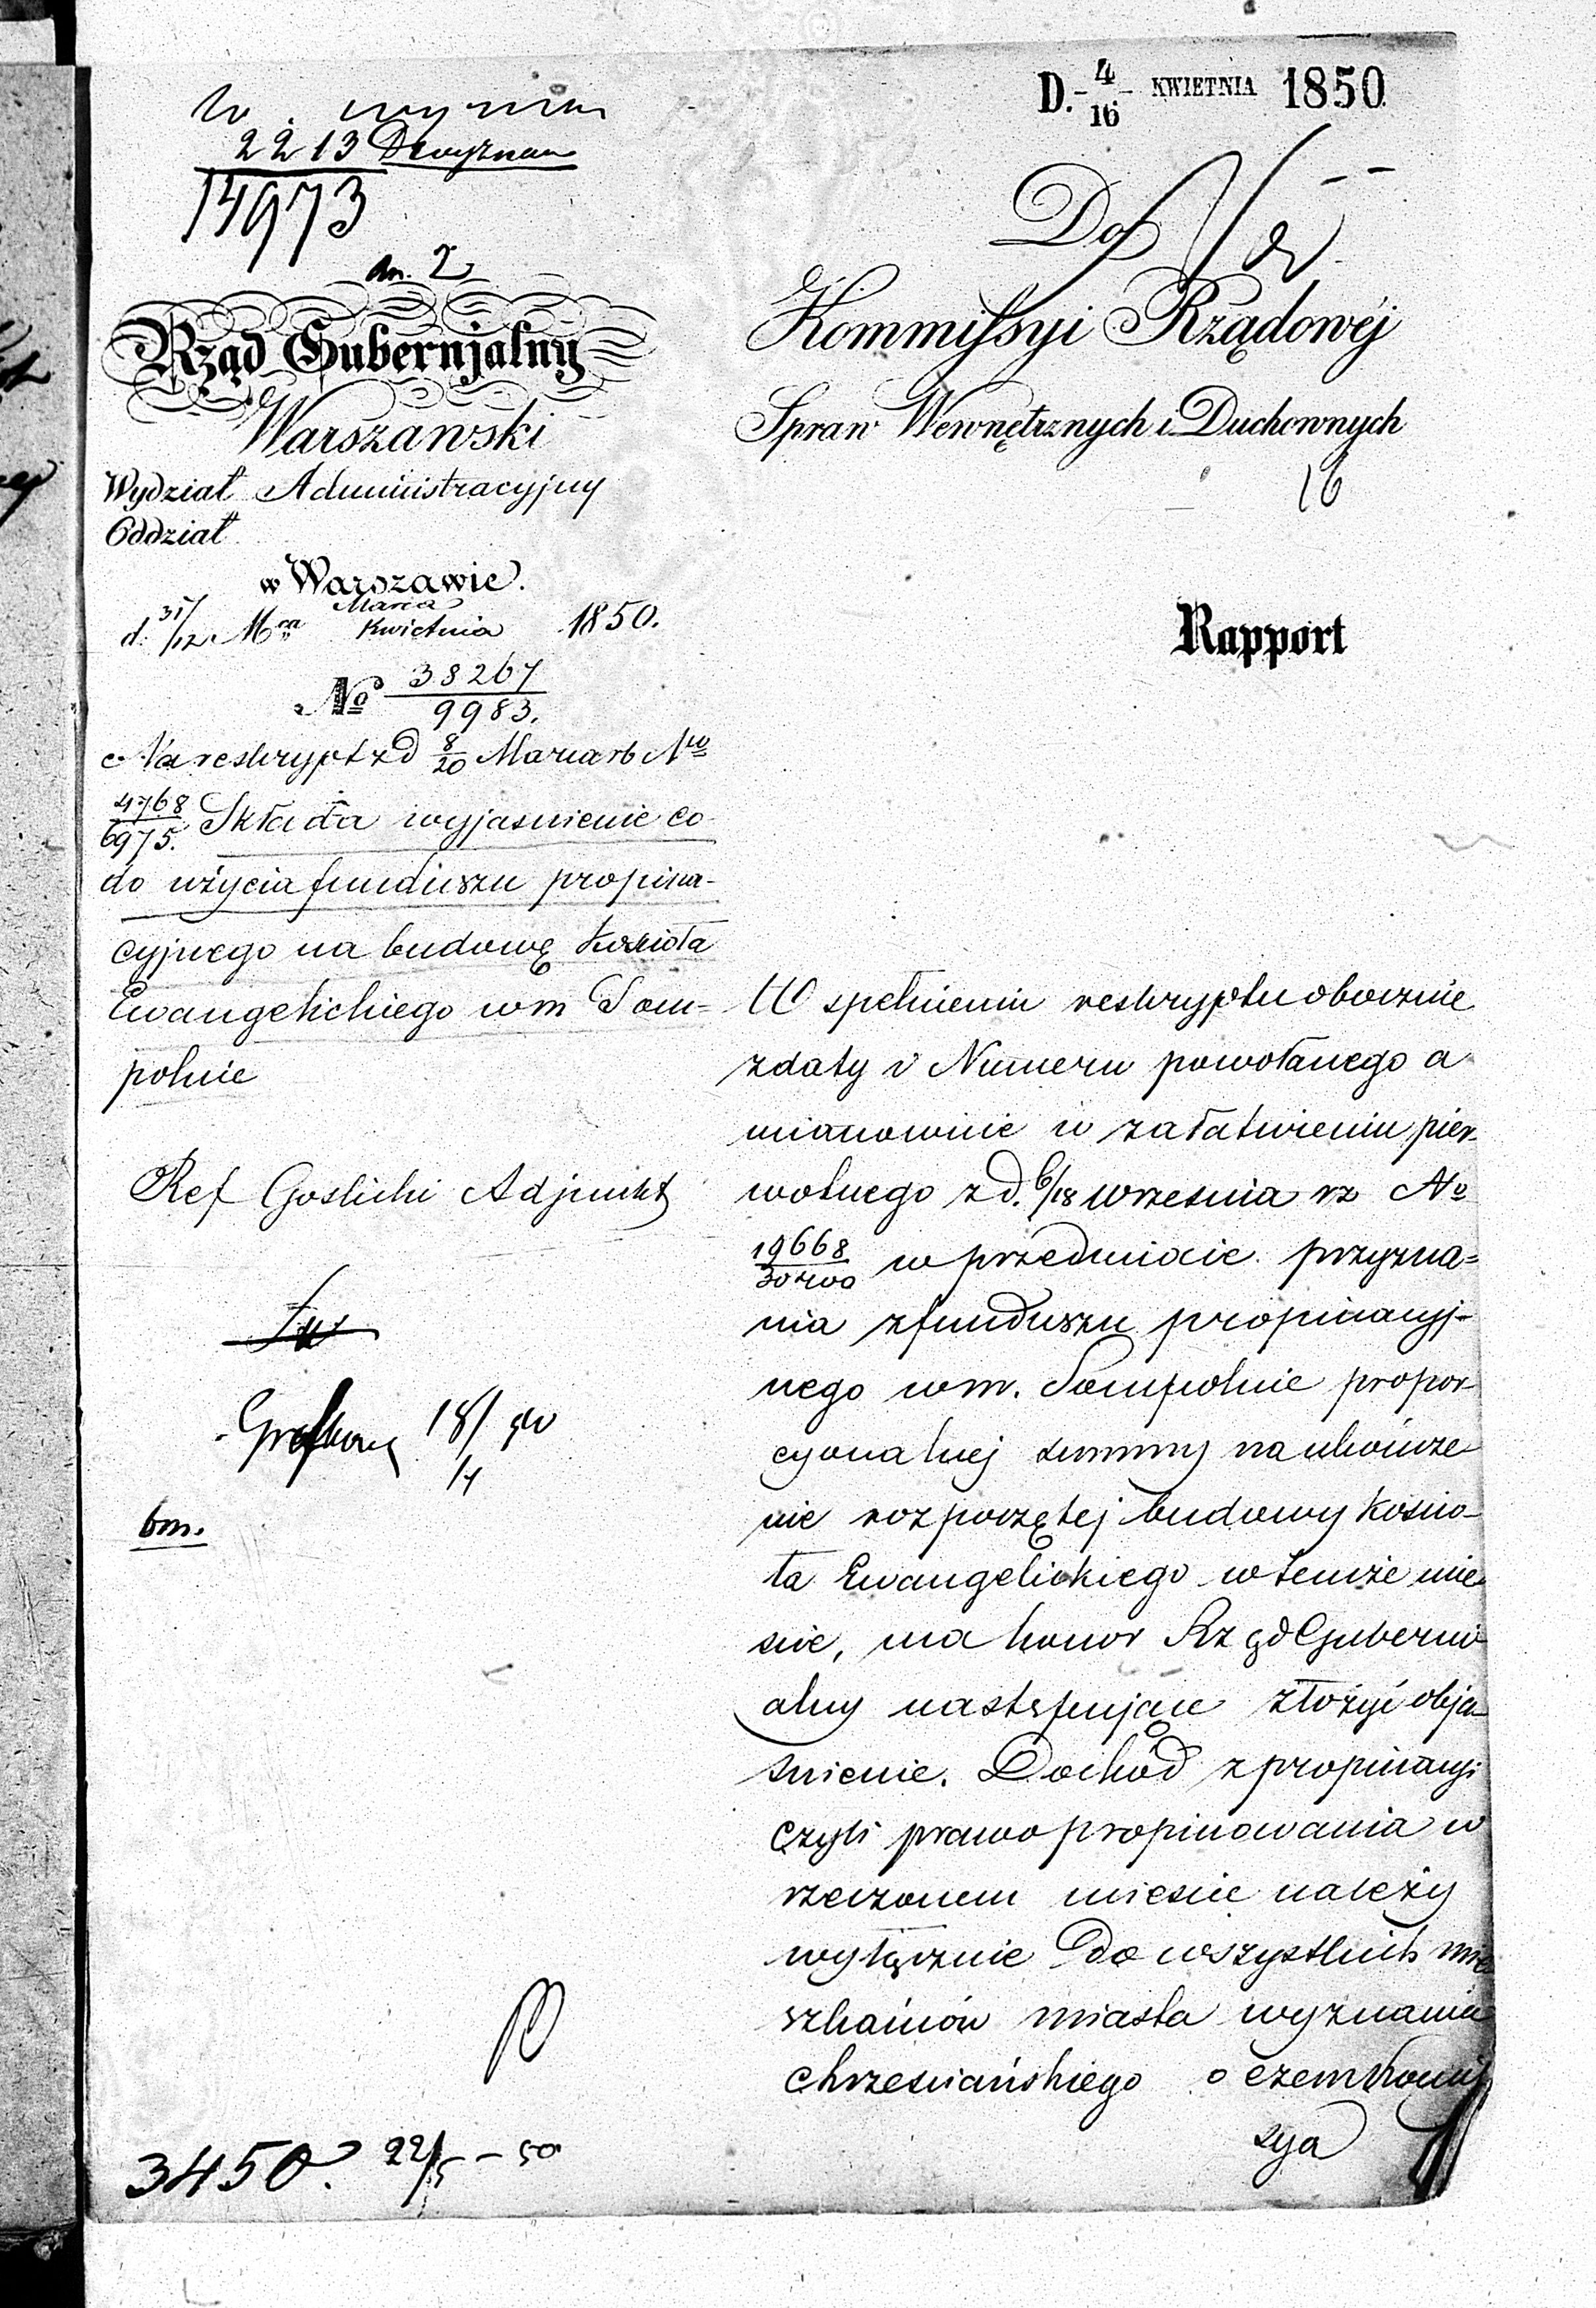 D. 4/16 KWIETNIA 1850
2213 D wyznan
14973
an. 2
Rząd Gubernjalny
Warszawski
Wydział Administracyjny
Oddział
w Warszawie.
d. 31/12 Mca Marca Kwietnia 1850.
No 38267/9983.
Na reskrypt z d 8/20 Marca rb Nro
4768/6975. Składa wyjasnienie co
do użycia funduszu propina-
cyjnego na budowę Kościoła
Ewangelickiego w m Som=
polnie
Ref Goslicki Adjunkt
18/4 50
bm.
3450. 22/5 - 50
Do
Kommissyi Rządowéj
Spraw Wewnętrznych i Duchownych
16
Rapport
W spełnieniu reskryptu obocznie
z daty i Numeru powołanego a
mianowicie w załatwieniu pier-
wotnego z d. 6/18 Wrzesnia rz No
19668/30200 w przedmiocie przyzna=
nia z funduszu propinacyj=
nego w m. Sompolnie propor
cyonalnej summy na ukończe
nie rozpoczętej budowy kościo-
ła Ewangelickiego w temże mie
scie, ma honor Rząd Guberni
alny następujące złożyć obja
snienie. Dochód z propinacyi
czyli prawo propinowania w
rzeczonem miescie należy
wyłącznie do wszystkich mie
szkańców miasta wyznania
chrzesciańskiego o czem Kommis
sya